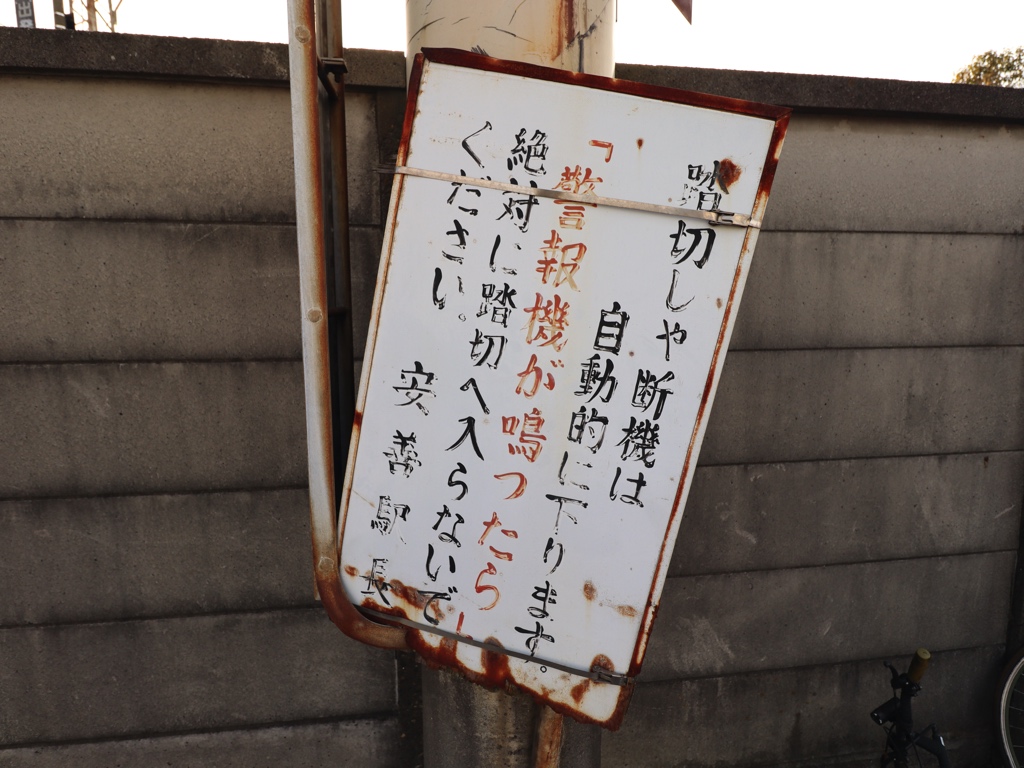 踏切しゃ断機は
自動的に下ります。
「警報機が鳴ったら」
絶対に踏切へ入らないで
ください。
安善駅長